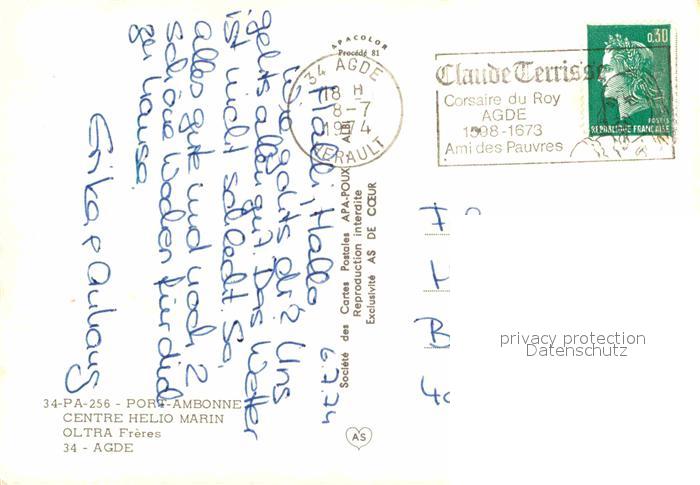 APACOLOR
Procédé 81
34 AGDE
18 H
8-7
1974
HERAULT
ALBI
Claude Terrisse
Corsaire du Roy
AGDE
1598-1673
Ami des Pauvres
0,30
POSTES
REPUBLIQUE FRANÇAISE
6.7.74
Halli, Hallo
Wie gehts dir? Uns
gehts allen gut. Das Wetter
ist nicht schlecht. So
alles gute und noch 2
schöne Wochen für dich
zu Hause.
Erika + Anhang
Société des Cartes Postales APA-POUX
Reproduction interdite
Exclusivité AS DE CŒUR
F
H
B
40
privacy protection
Datenschutz
34-PA-256 - PORT-AMBONNE
CENTRE HELIO MARIN
OLTRA Frères
34 - AGDE
AS